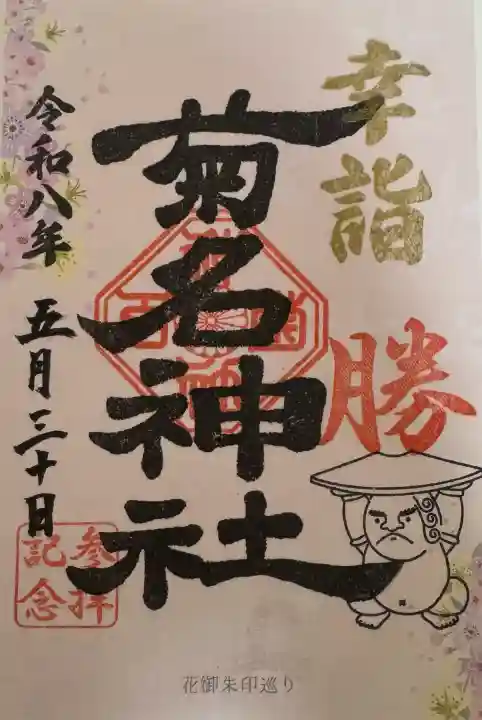 幸詣
勝
菊名神社
令和八年 五月三十日
参拝
記念
花御朱印巡り